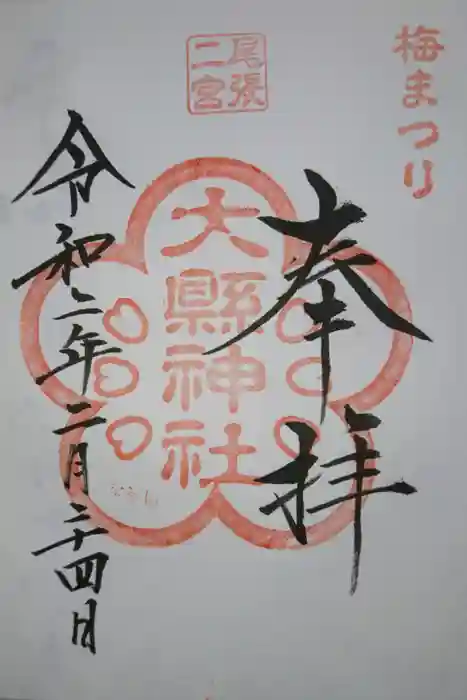 梅まつり
奉拝
尾張
二宮
大縣神社
令和二年二月二十四日